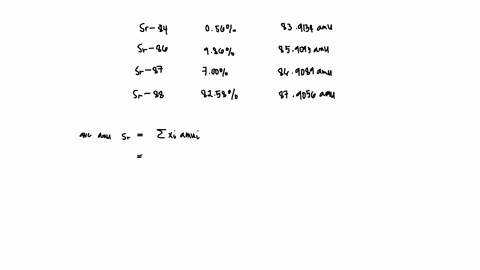 Sr-84 0.56% 83.9134 amu
Sr-86 9.86% 85.9093 amu
Sr-87 7.00% 86.9089 amu
Sr-88 82.58% 87.9056 amu
ave amu Sr = Σ xi amui
=